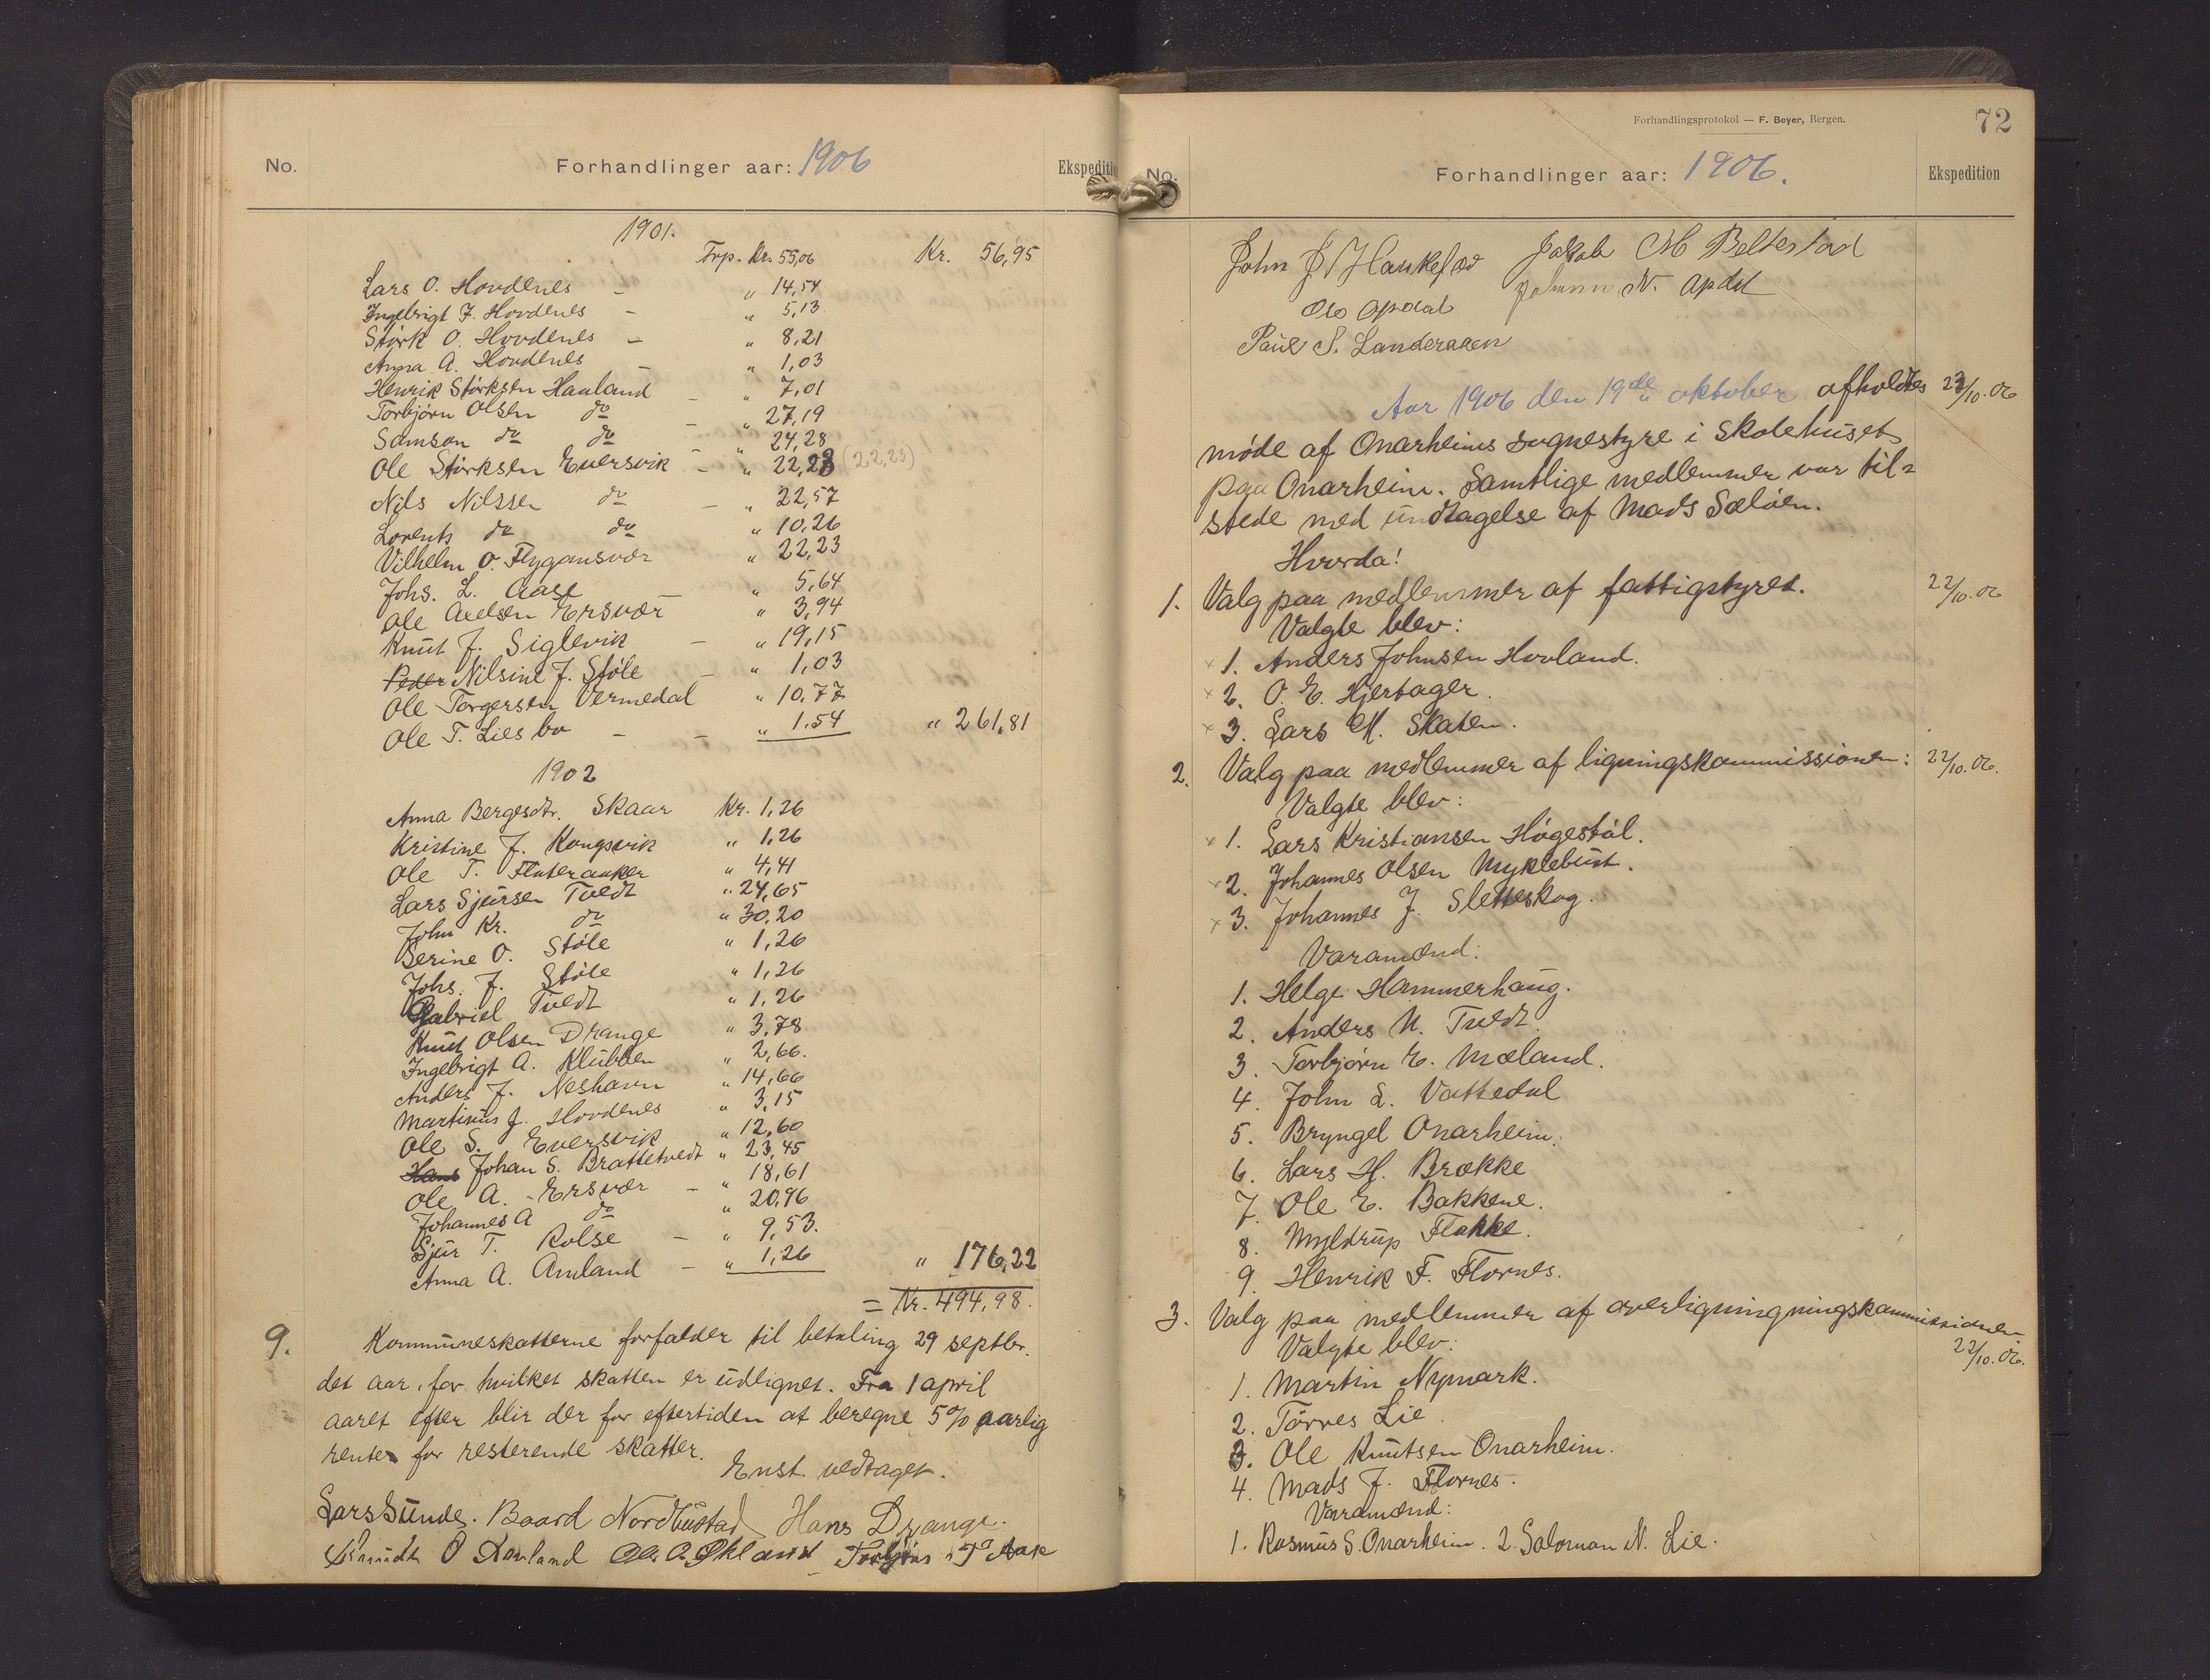 No. Forhandlinger aar: 1906 Ekspedition
1901.
Trp. Kr. 55,06 Kr. 56,95
Lars O. Hovdenes – " 14,54
Ingebrigt J. Hovdenes – " 5,13
Størk O. Hovdenes – " 8,21
Anna A. Hovdenes – " 1,03
Henrik Størksen Hauland – " 7,01
Torbjørn Olsen do – " 27,19
Samson do do – " 24,28
Ole Størksen Eversvik – " 22,23 (22,23)
Nils Nilssen do – " 22,57
Lorents do do " 10,26
Vilhelm O. Flygansvær " 22,23
Johs. L. Aase " 5,64
Ole Axelsen Ersvær " 3,94
Knut J. Siglevik – " 19,15
Peder Nilsine J. Støle – " 1,03
Ole Torgersen Vermedal " 10,77
Ole T. Liesbø – – " 1.54 " 261,81
1902
Anna Bergesdtr. Skaar Kr. 1,26
Kristine J. Kongsvik " 1,26
Ole T. Fluteraaker " 4,41
Lars Sjursen Tvedt " 24,65
John Kr. do " 30,20
Serine O. Støle " 1,26
Johs. J. Støle " 1,26
Gabriel Tvedt " 1,26
Knut Olsen Drange " 3,78
Ingebrigt A. Klubben " 2,66.
Anders J. Neshavn " 14,66
Martinus J. Hovdenes " 3,15
Ole S. Eversvik " 12,60
Hans Johan S. Brattetvedt " 23,45
Ole A. Ersvær – " 18,61
Johannes A do " 20,96
Sjur T. Rolse – " 9,53.
Anna A. Amland – " 1,26 " 176,22
= Kr. 494,98.
9. Kommuneskatterne forfalder til betaling 29 septbr.
det aar, for hvilket skatten er udlignet. Fra 1 april
aaret efter blir der for eftertiden at beregne 5% aarlig
renter for resterende skatter.
Enst. vedtaget.
Lars Sunde. Baard Nordhustad Hans Drange.
Knudt O Røuland Ole A. Økland Torbjørn T. Aak
Forhandlingsprotokol — F. Beyer, Bergen. 72
No. Forhandlinger aar: 1906. Ekspedition
John J Haukefær Jakob M Beltestad
Johann N. Apdal
Ole Opdal
Paul S. Landeraaen
Aar 1906 den 19de oktober afholdtes 23/10.06
møde af Onarheims sognestyre i skolehuset
paa Onarheim. Samtlige medlemmer var til=
stede med undtagelse af Mads Sæløen.
Hvorda!
1. Valg paa medlemmer af fattigstyret. 22/10.06
Valgte blev:
× 1. Anders Johnsen Hovland.
× 2. O. E. Hjertager.
× 3. Lars M. Skaten.
2. Valg paa medlemmer af ligningskommissionen: 22/10.06.
Valgte blev:
× 1. Lars Kristiansen Høgestøl.
× 2. Johannes Olsen Myklebust.
× 3. Johannes J. Sletteskog.
Varamænd:
1. Helge Hammerhaug.
2. Anders N. Tvedt.
3. Torbjørn E. Mæland.
4. John L. Vattedal
5. Bryngel Onarheim.
6. Lars H. Brække
7. Ole E. Bakkene.
8. Myldrup Flakke.
9. Henrik F. Flornes.
3. Valg paa medlemmer af overligningningskommissionen
Valgte blev: 22/10.06.
1. Martin Nymark.
2. Tørres Lie.
3. Ole Knutsen Onarheim.
4. Mads J. Flornes.
Varamænd:
1. Rasmus S. Onarheim. 2. Salomon N. Lie.